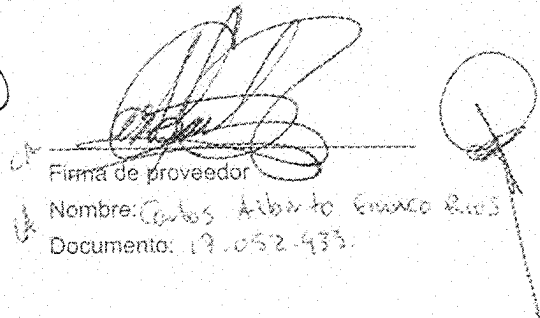 Firma de proveedor
Nombre: Carlos Alberto Franco Rios
Documento: 19.052.933.